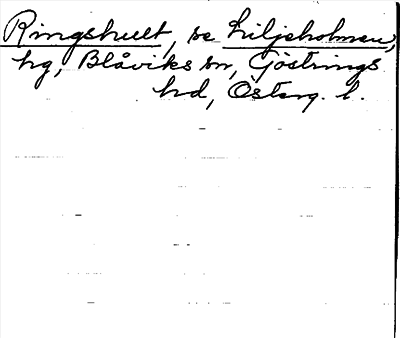 Ringshult, se Liljeholmen,
hg, Blåviks sn, Göstrings
hd, Österg. l.